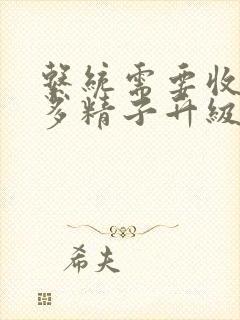 繫統需要收
多精子升級
希夫